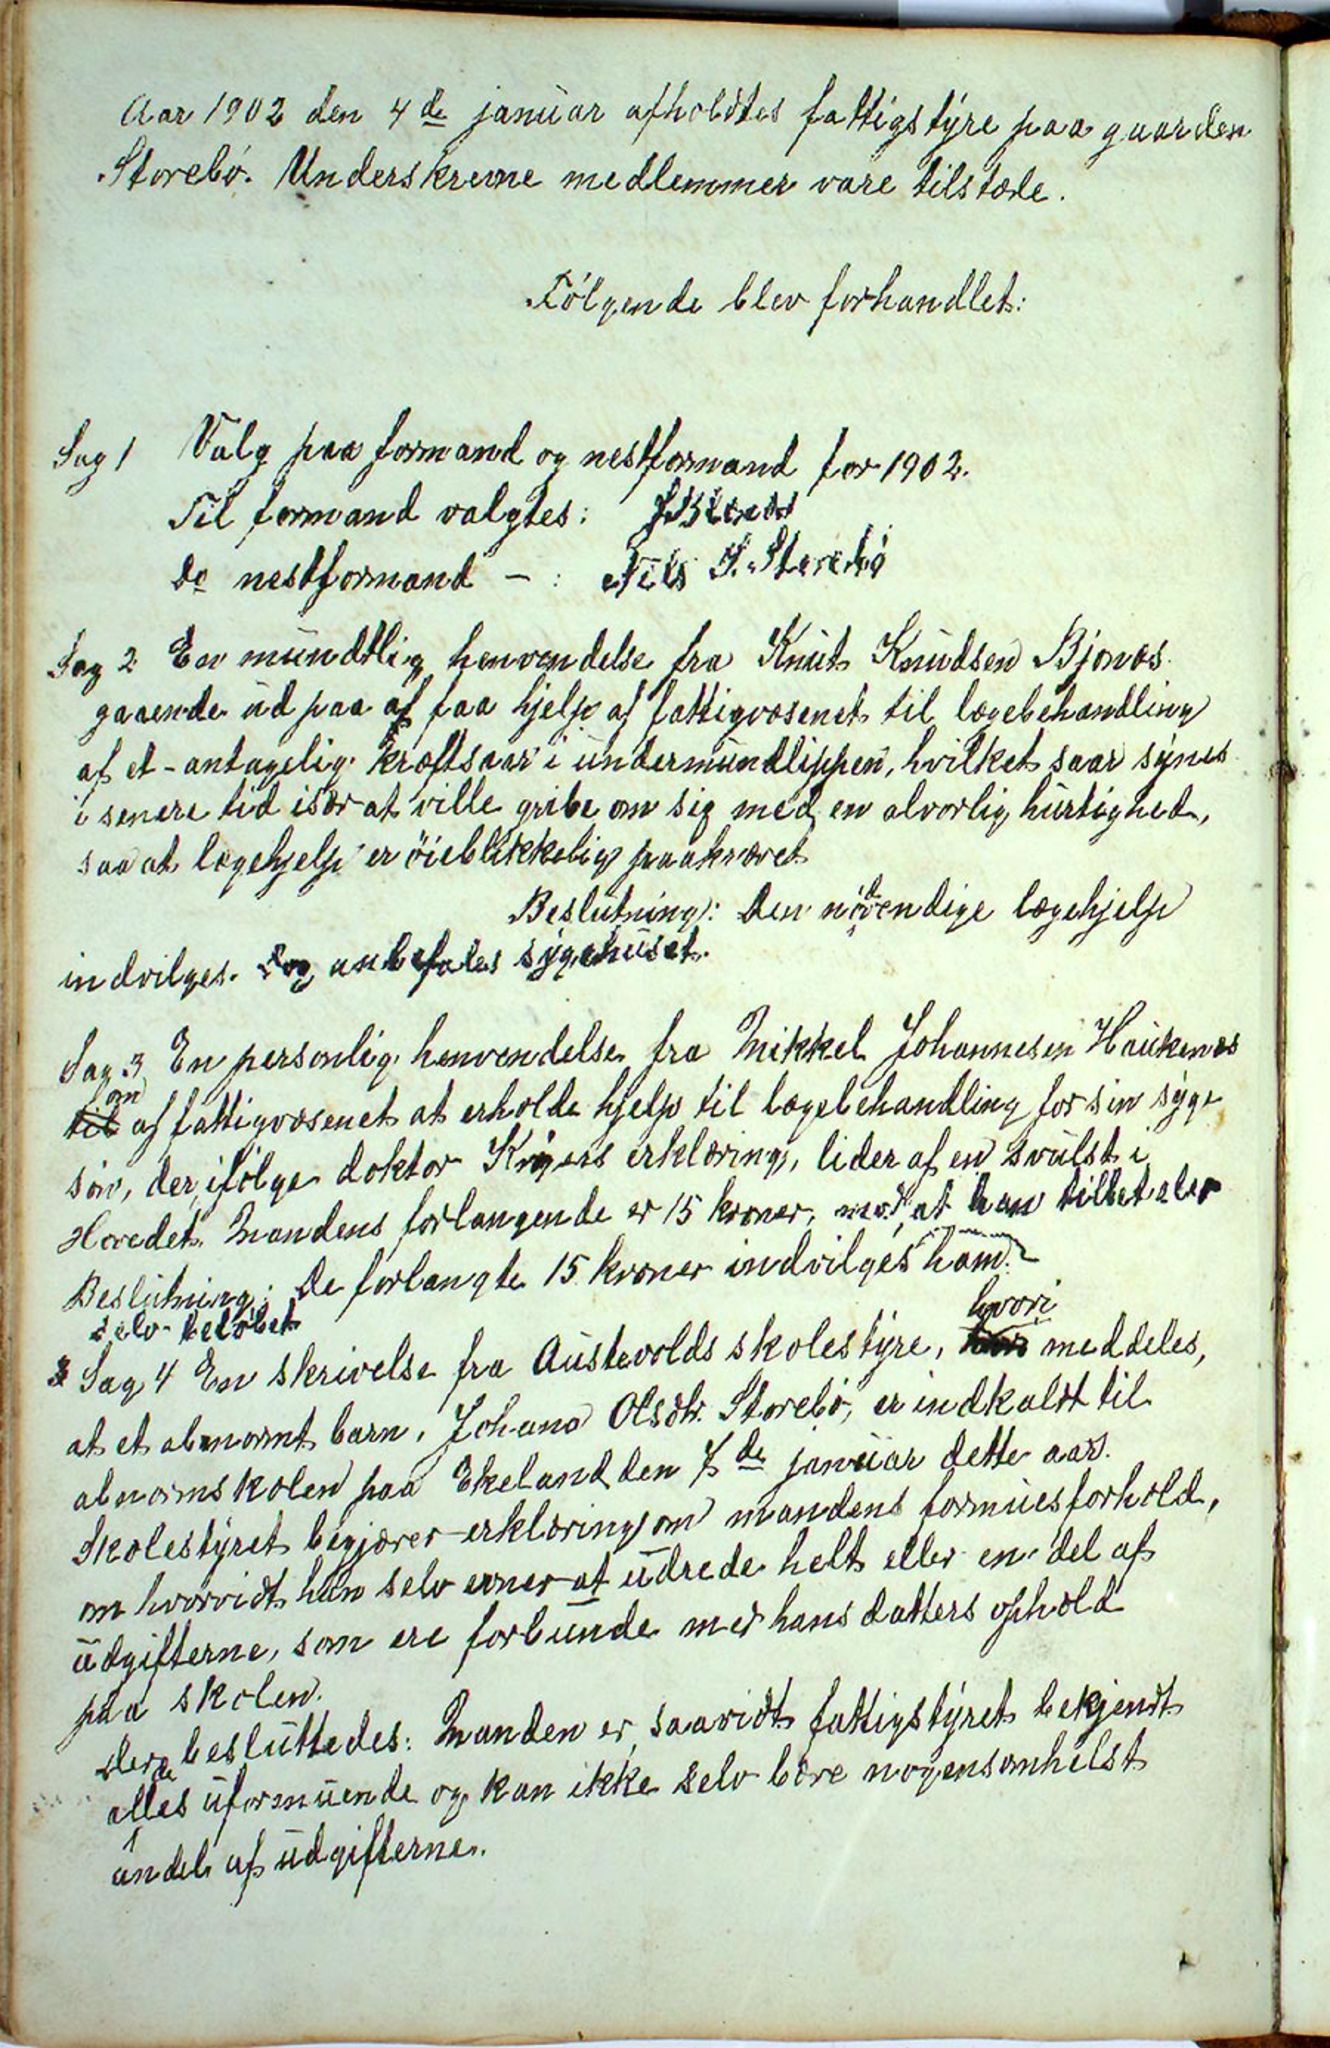 Aar 1902 den 4de januar afholdtes fattigstyre paa gaarden
Storebø. Underskrevne medlemmer vare tilstæde.
Følgende blev forhandlet:
Sag 1 Valg paa formand og nestformand for 1902.
Til formand valgtes:
Do nestformand - : Nils J. Storebø
Sag 2 En mundtlig henvendelse fra Knut Knudsen Bjonæs
gaaende ud paa af faa hjelp af fattigvæsenet til lægebehandling
af et - antagelig kræftsaar i undermundlippen, hvilket saar synes
i senere tid især at ville gribe om sig med en alvorlig hurtighed,
saa at lægehjelp er öieblikkelig paakrævet
Beslutning: Den nødvendige lægehjelp
indvilges. Dog anbefales sygehuset.
Sag 3 En personlig henvendelse fra Mikkel Johannesen Haukenæs
om
til af fattigvæsenet at erholde hjelp til lægebehandling for sin syge
søn, der, ifølge doktor Krøyers erklæring, lider af en svulst i
Hovedet. Mandens forlangende er 15 kroner, mod at han tilbetaler
Beslutning: De forlangte 15 kroner indvilges ham.
selv beløbet
hvori
Sag 4 En skrivelse fra Austevolds skolestyre, meddeles,
at et abnormt barn, Johana Olsdtr. Storebø, er indkaldt til
abnormskolen paa Ekeland den 7de januar dette aar.
Skolestyret begjærer erklæring om mandens formuesforhold,
om hvorvidt han selv evner at udrede helt eller en del af
udgifterne, som ere forbunde med hans datters ophold
paa skolen.
Der besluttedes: Manden er, saavidt fattigstyret bekjendt
alles uformuende og kan ikke selv bære nogensomhelst
andel af udgifterne.